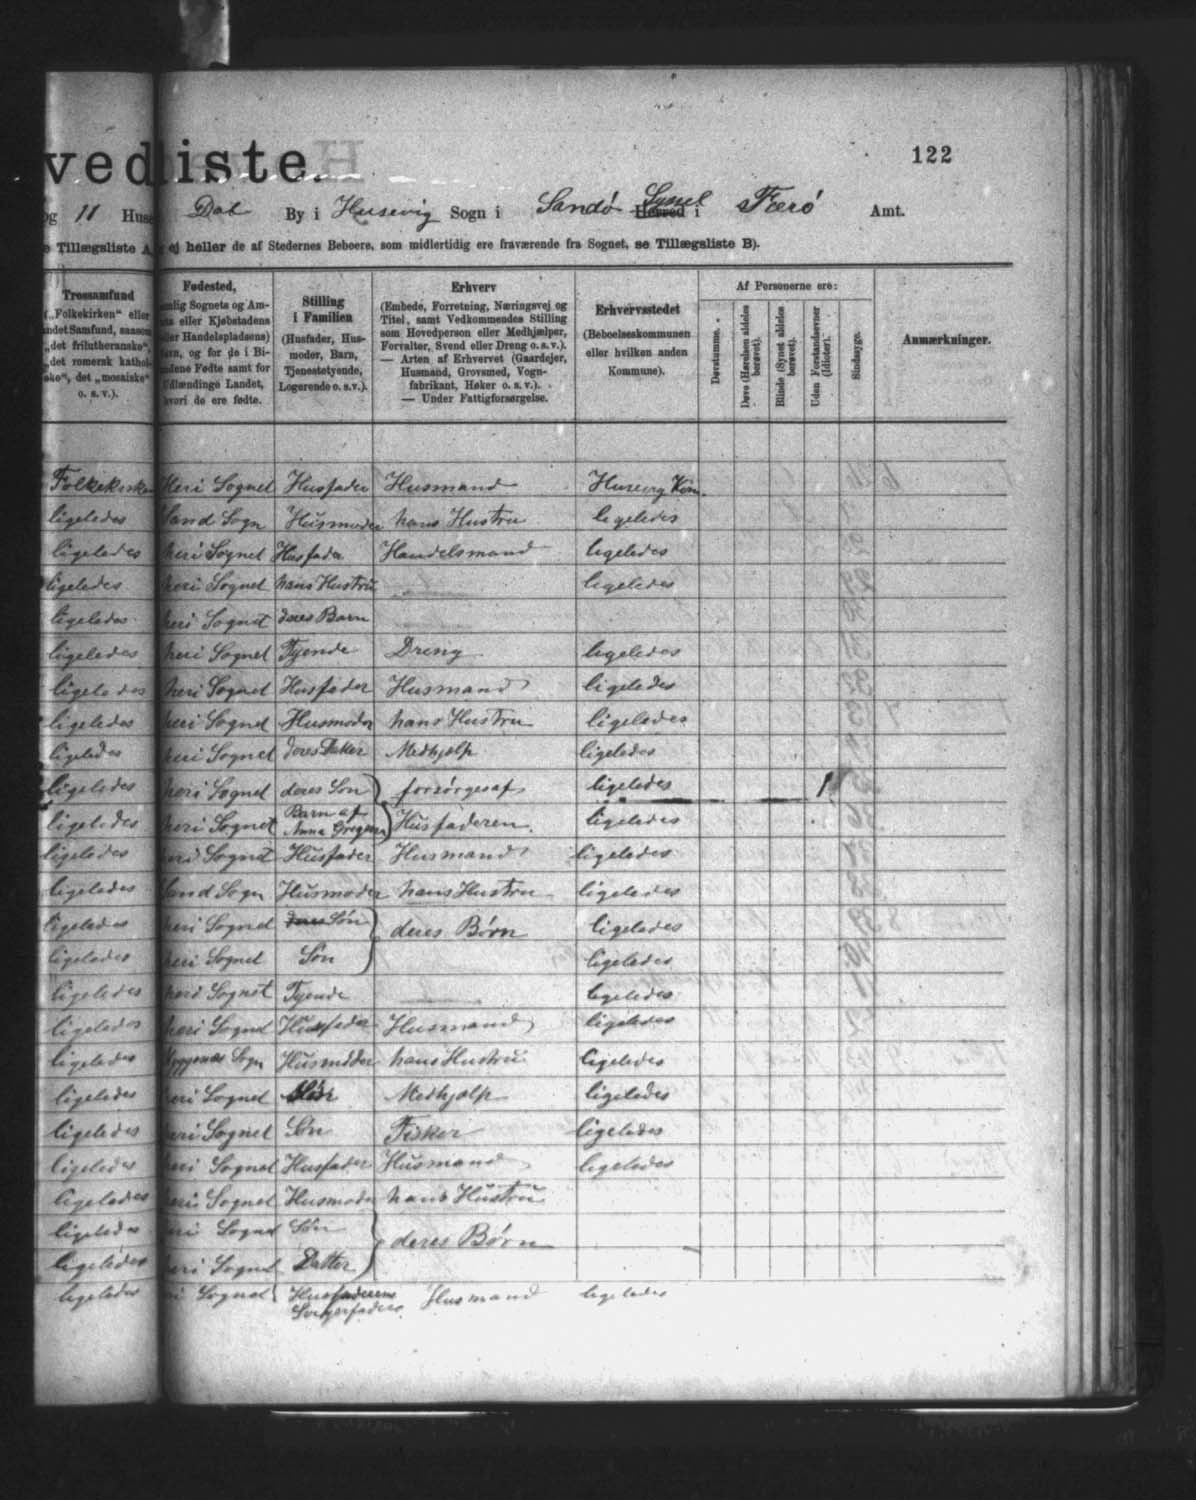 vedliste.
122
og 11 Huse Dal By i Husevig Sogn i Sandö Syssel Herred i Færö Amt.
e Tillægsliste A, ej heller de af Stedernes Beboere, som midlertidig ere fraværende fra Sognet, se Tillægsliste B).
Trossamfund
(„Folkekirken“ eller
andet Samfund, saasom
„det frilutheranske“,
„det romersk kathol-
ske“, det „mosaiske“
o. s. v.).
Fødested,
nemlig Sognets og Am-
ts eller Kjøbstadens
eller Handelspladsens)
Navn, og for de i Bi-
landene Fødte samt for
Udlændinge Landet,
hvori de ere fødte.
Stilling
i Familien
(Husfader, Hus-
moder, Barn,
Tjenestetyende,
Logerende o. s. v.).
Erhverv
(Embede, Forretning, Næringsvej og
Titel, samt Vedkommendes Stilling
som Hovedperson eller Medhjælper,
Forvalter, Svend eller Dreng o. s. v.).
— Arten af Erhvervet (Gaardejer,
Husmand, Grovsmed, Vogn-
fabrikant, Høker o. s. v.).
— Under Fattigforsørgelse.
Erhvervsstedet
(Beboelseskommunen
eller hvilken anden
Kommune).
Af Personerne ere:
Døvstumme.
Døve (Hørelsen aldeles
berøvet).
Blinde (Synet aldeles
berøvet).
Uden Forstandsevner
(Idioter).
Sindssyge.
Anmærkninger.
Folkekirken heri Sognet Husfader Husmand Husevig Kom.
ligeledes Sand Sogn Husmoder hans Hustru ligeledes
ligeledes heri Sognet Husfader Handelsmand ligeledes
ligeledes heri Sognet hans Hustru ligeledes
ligeledes heri Sognet deres Barn
ligeledes heri Sognet Tyende Dreng ligeledes
ligeledes heri Sognet Husfader Husmand ligeledes
ligeledes heri Sognet Husmoder hans Hustru ligeledes
ligeledes heri Sognet deres Datter Medhjælp ligeledes
ligeledes heri Sognet deres Søn forsørges af ligeledes 1
ligeledes heri Sognet Barn af Anna Husfaderen. ligeledes
ligeledes heri Sognet Husfader Husmand ligeledes
ligeledes Sand Sogn Husmoder hans Hustru ligeledes
ligeledes heri Sognet deres Søn deres Børn ligeledes
ligeledes heri Sognet Søn ligeledes
ligeledes heri Sognet Tyende ligeledes
ligeledes heri Sognet Husfader Husmand ligeledes
ligeledes Sogn Husmoder hans Hustru ligeledes
ligeledes heri Sognet Medhjælp ligeledes
ligeledes heri Sognet Søn Fisker ligeledes
ligeledes heri Sognet Husfader Husmand ligeledes
ligeledes heri Sognet Husmoder hans Hustru
ligeledes heri Sognet Søn deres Børn
ligeledes heri Sognet Datter
ligeledes heri Sognet Husfaderens Svigerfader Husmand ligeledes